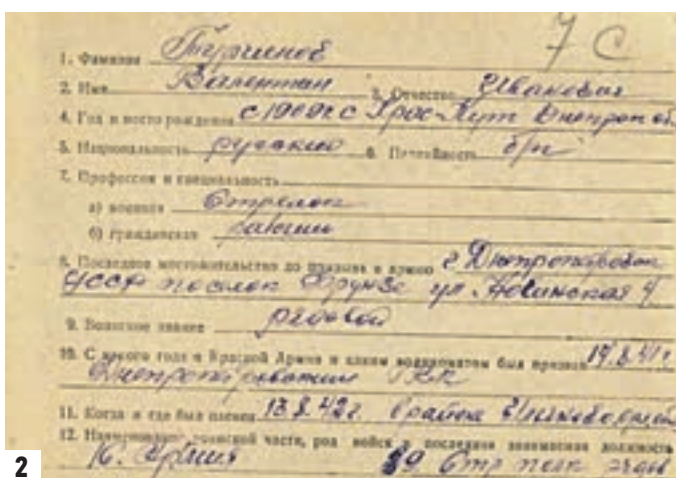 7 С
1. Фамилия
2. Имя Валентин 3. Отчество Иванович
4. Год и место рождения с 1909 г с Днепроп об.
5. Национальность русский 6. Партийность б/п
7. Профессия и специальность
а) военная Стрелок
б) гражданская рабочий
8. Последнее местожительство до призыва в армию г Днепропетровск
УССР поселок Фрунзе ул. 4
9. Воинское звание рядовой
10. С какого года в Красной Армии и каким военкоматом был призван 19.8.41 г.
Днепропетровским РВК
11. Когда и где был пленен 13.8.42 г. в районе
12. Наименование воинской части, род войск и последняя занимаемая должность
16. Армия 89 Стр полк
2